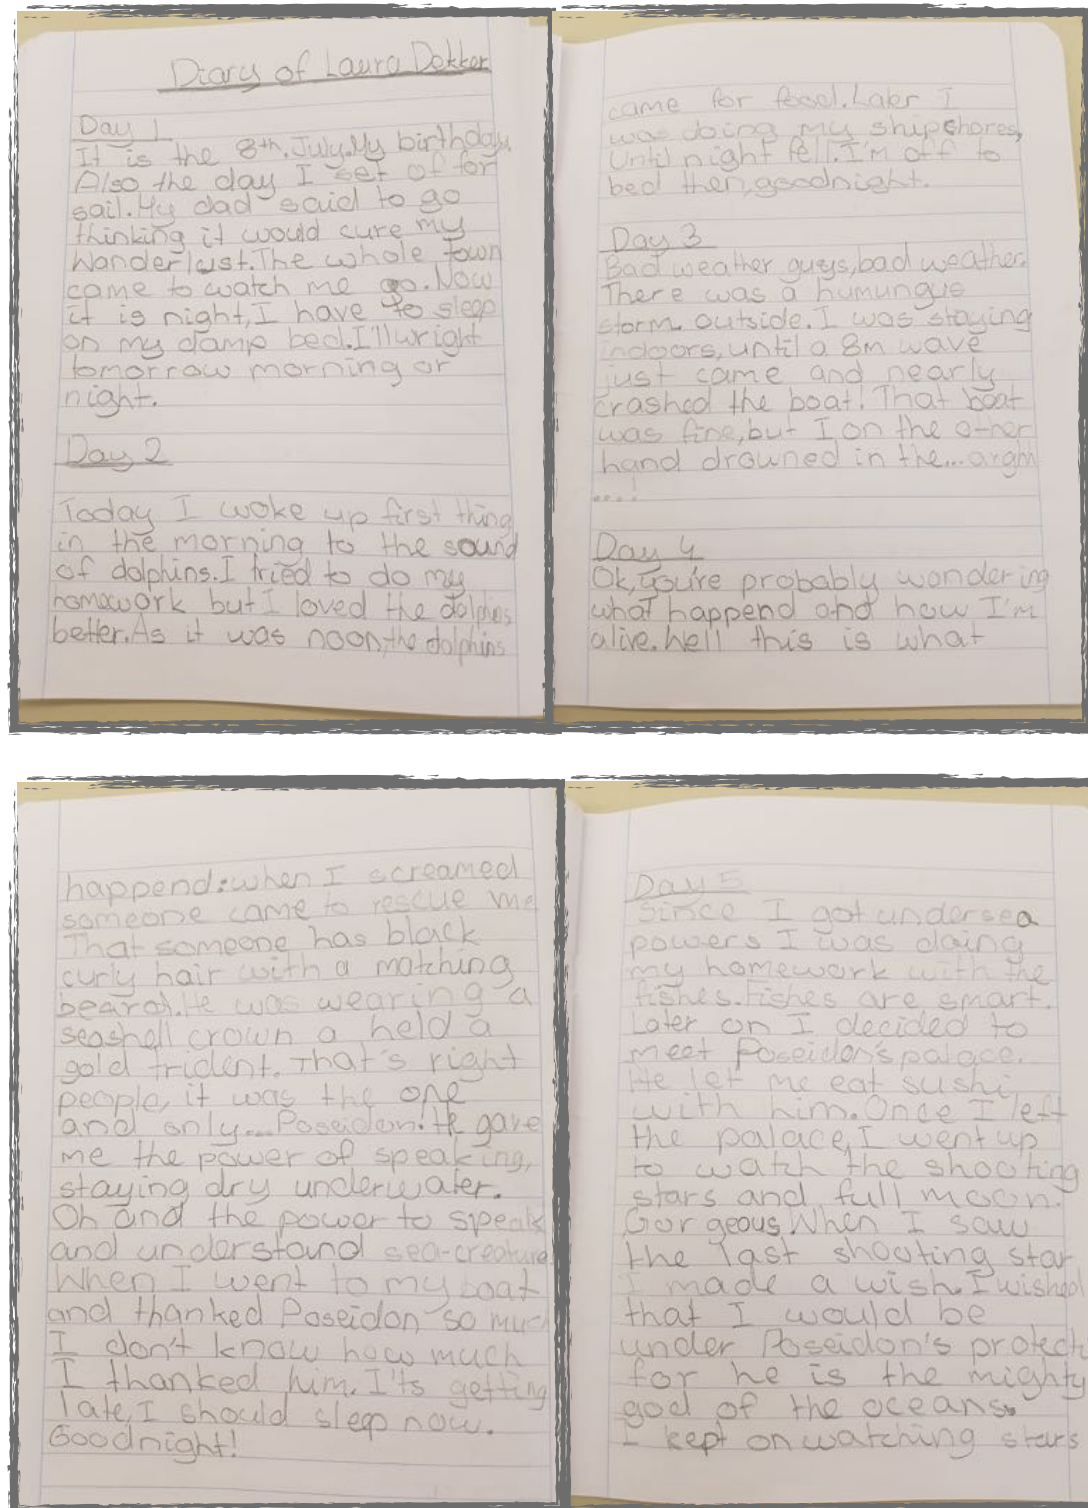 Diary of Laura Dekker
Day 1
It is the 8th. July. My birthday.
Also the day I set of for
sail. My dad said to go
thinking it would cure my
Wanderlust. The whole town
came to watch me go. Now
it is night, I have to sleep
on my damp bed. I'll wright
tomorrow morning or
night.
Day 2
Today I woke up first thing
in the morning to the sound
of dolphins. I tried to do my
homework but I loved the dolphins
better. As it was noon, the dolphins
came for food. Later I
was doing my ship chores,
Until night fell. I'm off to
bed then, goodnight.
Day 3
Bad weather guys, bad weather.
There was a humungus
storm outside. I was staying
indoors, until a 8m wave
just came and nearly
crashed the boat! That boat
was fine, but I on the other
hand drowned in the... argh
...!
Day 4
Ok, you're probably wondering
what happend and how I'm
alive. Well this is what
happend: when I screamed
someone came to rescue me
That someone has black
curly hair with a matching
beard. He was wearing a
seashell crown a held a
gold trident. That's right
people, it was the one
and only... Poseidon. He gave
me the power of speaking,
staying dry underwater.
Oh and the power to speak
and understand sea-creature
When I went to my boat
and thanked Poseidon so much
I don't know how much
I thanked him. I'ts getting
late, I should sleep now.
Goodnight!
Day 5
Since I got undersea
powers I was doing
my homework with the
fishes. Fishes are smart.
Later on I decided to
meet Poseidon's palace.
He let me eat sushi
with him. Once I left
the palace, I went up
to watch the shooting
stars and full moon.
Gorgeous. When I saw
the last shooting star
I made a wish. I wished
that I would be
under Poseidon's protecti
for he is the mighty
god of the oceans.
I kept on watching stars